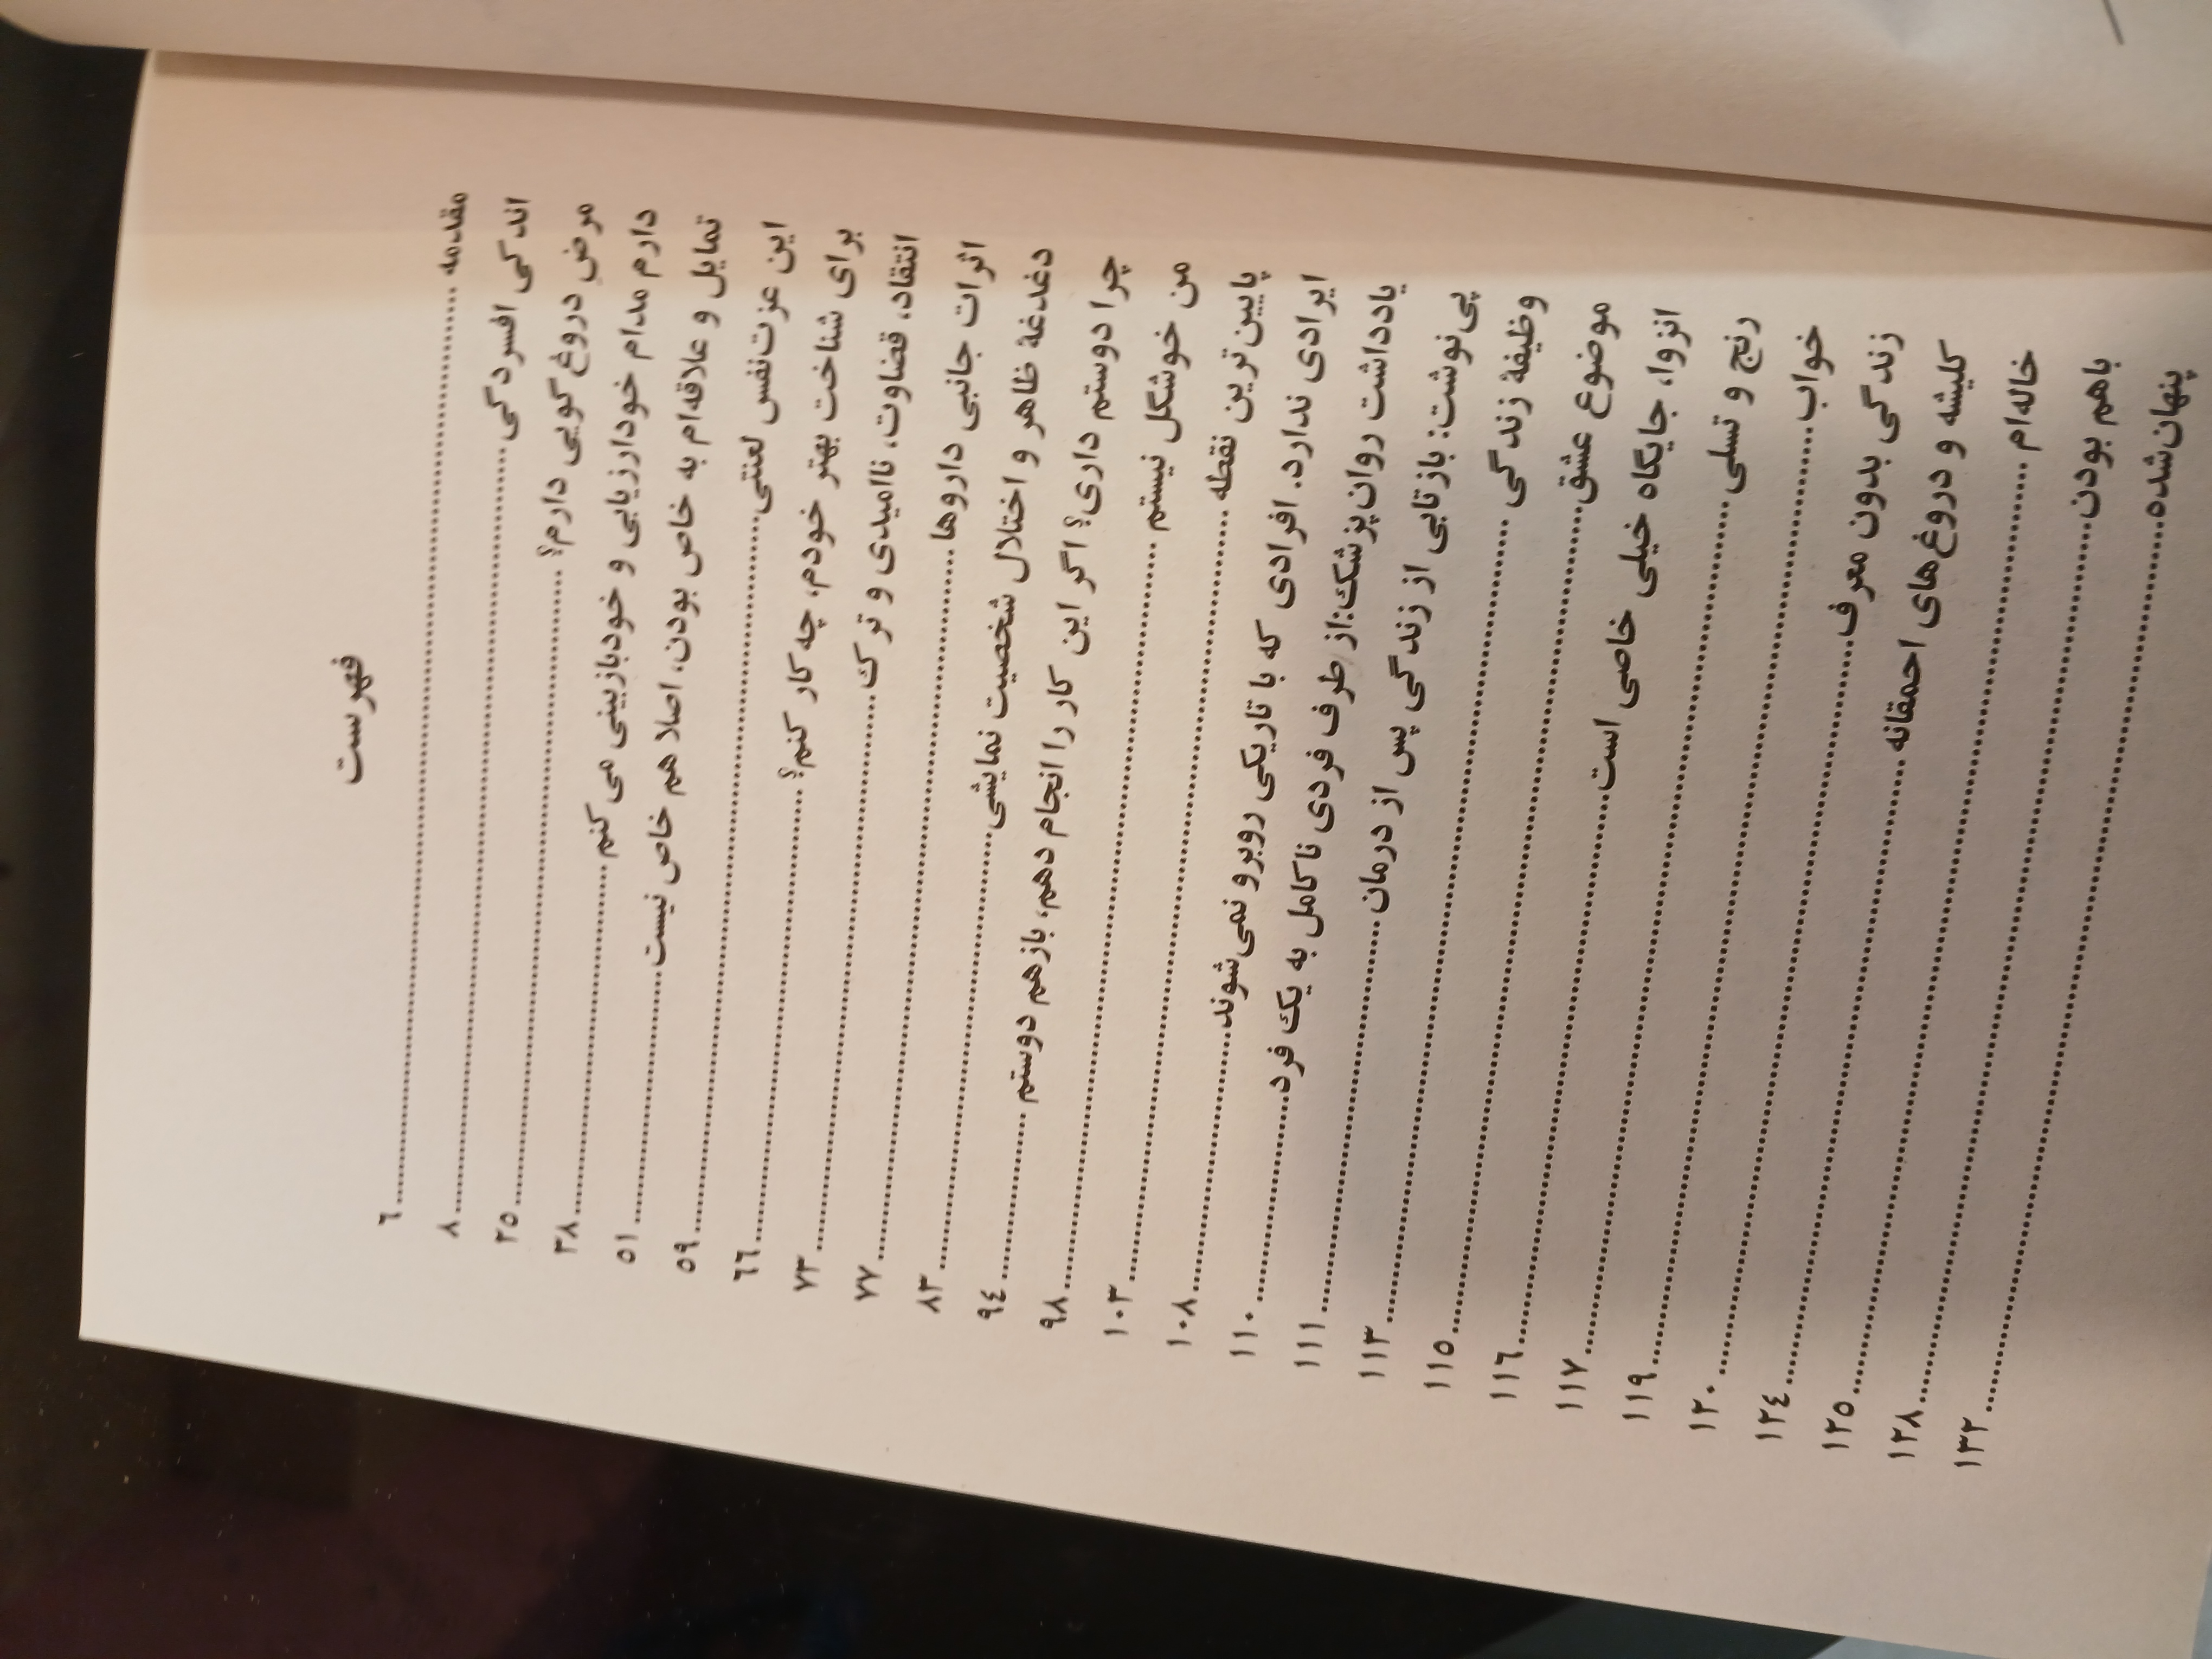 فهرست
مقدمه ........ ٦
اندکی افسردگی ........ ٨
مرضِ دروغ‌گویی دارم؟ ........ ٢٥
دارم مدام خودارزیابی و خودبازبینی می‌کنم ........ ٣٨
تمایل و علاقه‌ام به خاص بودن، اصلا هم خاص نیست ........ ٥١
این عزت‌نفس لعنتی ........ ٥٩
برای شناخت بهتر خودم، چه کار کنم؟ ........ ٦٦
انتقاد، قضاوت، ناامیدی و ترک ........ ٧٣
اثرات جانبی داروها ........ ٧٧
دغدغهٔ ظاهر و اختلال شخصیت نمایشی ........ ٨٣
چرا دوستم داری؟ اگر این کار را انجام دهم، بازهم دوستم ........ ٩٤
من خوشگل نیستم ........ ٩٨
پایین‌ترین نقطه ........ ١٠٣
ایرادی ندارد. افرادی که با تاریکی روبرو نمی‌شوند ........ ١٠٨
یادداشت روان‌پزشک: از طرف فردی ناکامل به یک فرد ........ ١١٠
پی‌نوشت: بازتابی از زندگی پس از درمان ........ ١١١
وظیفهٔ زندگی ........ ١١٣
موضوع عشق ........ ١١٥
انزوا، جایگاه خیلی خاصی است ........ ١١٦
رنج و تسلی ........ ١١٧
خواب ........ ١١٩
زندگی بدون معرف ........ ١٢٠
کلیشه و دروغ‌های احمقانه ........ ١٢٤
خاله‌ام ........ ١٢٥
باهم بودن ........ ١٢٨
پنهان‌شده ........ ١٣٢